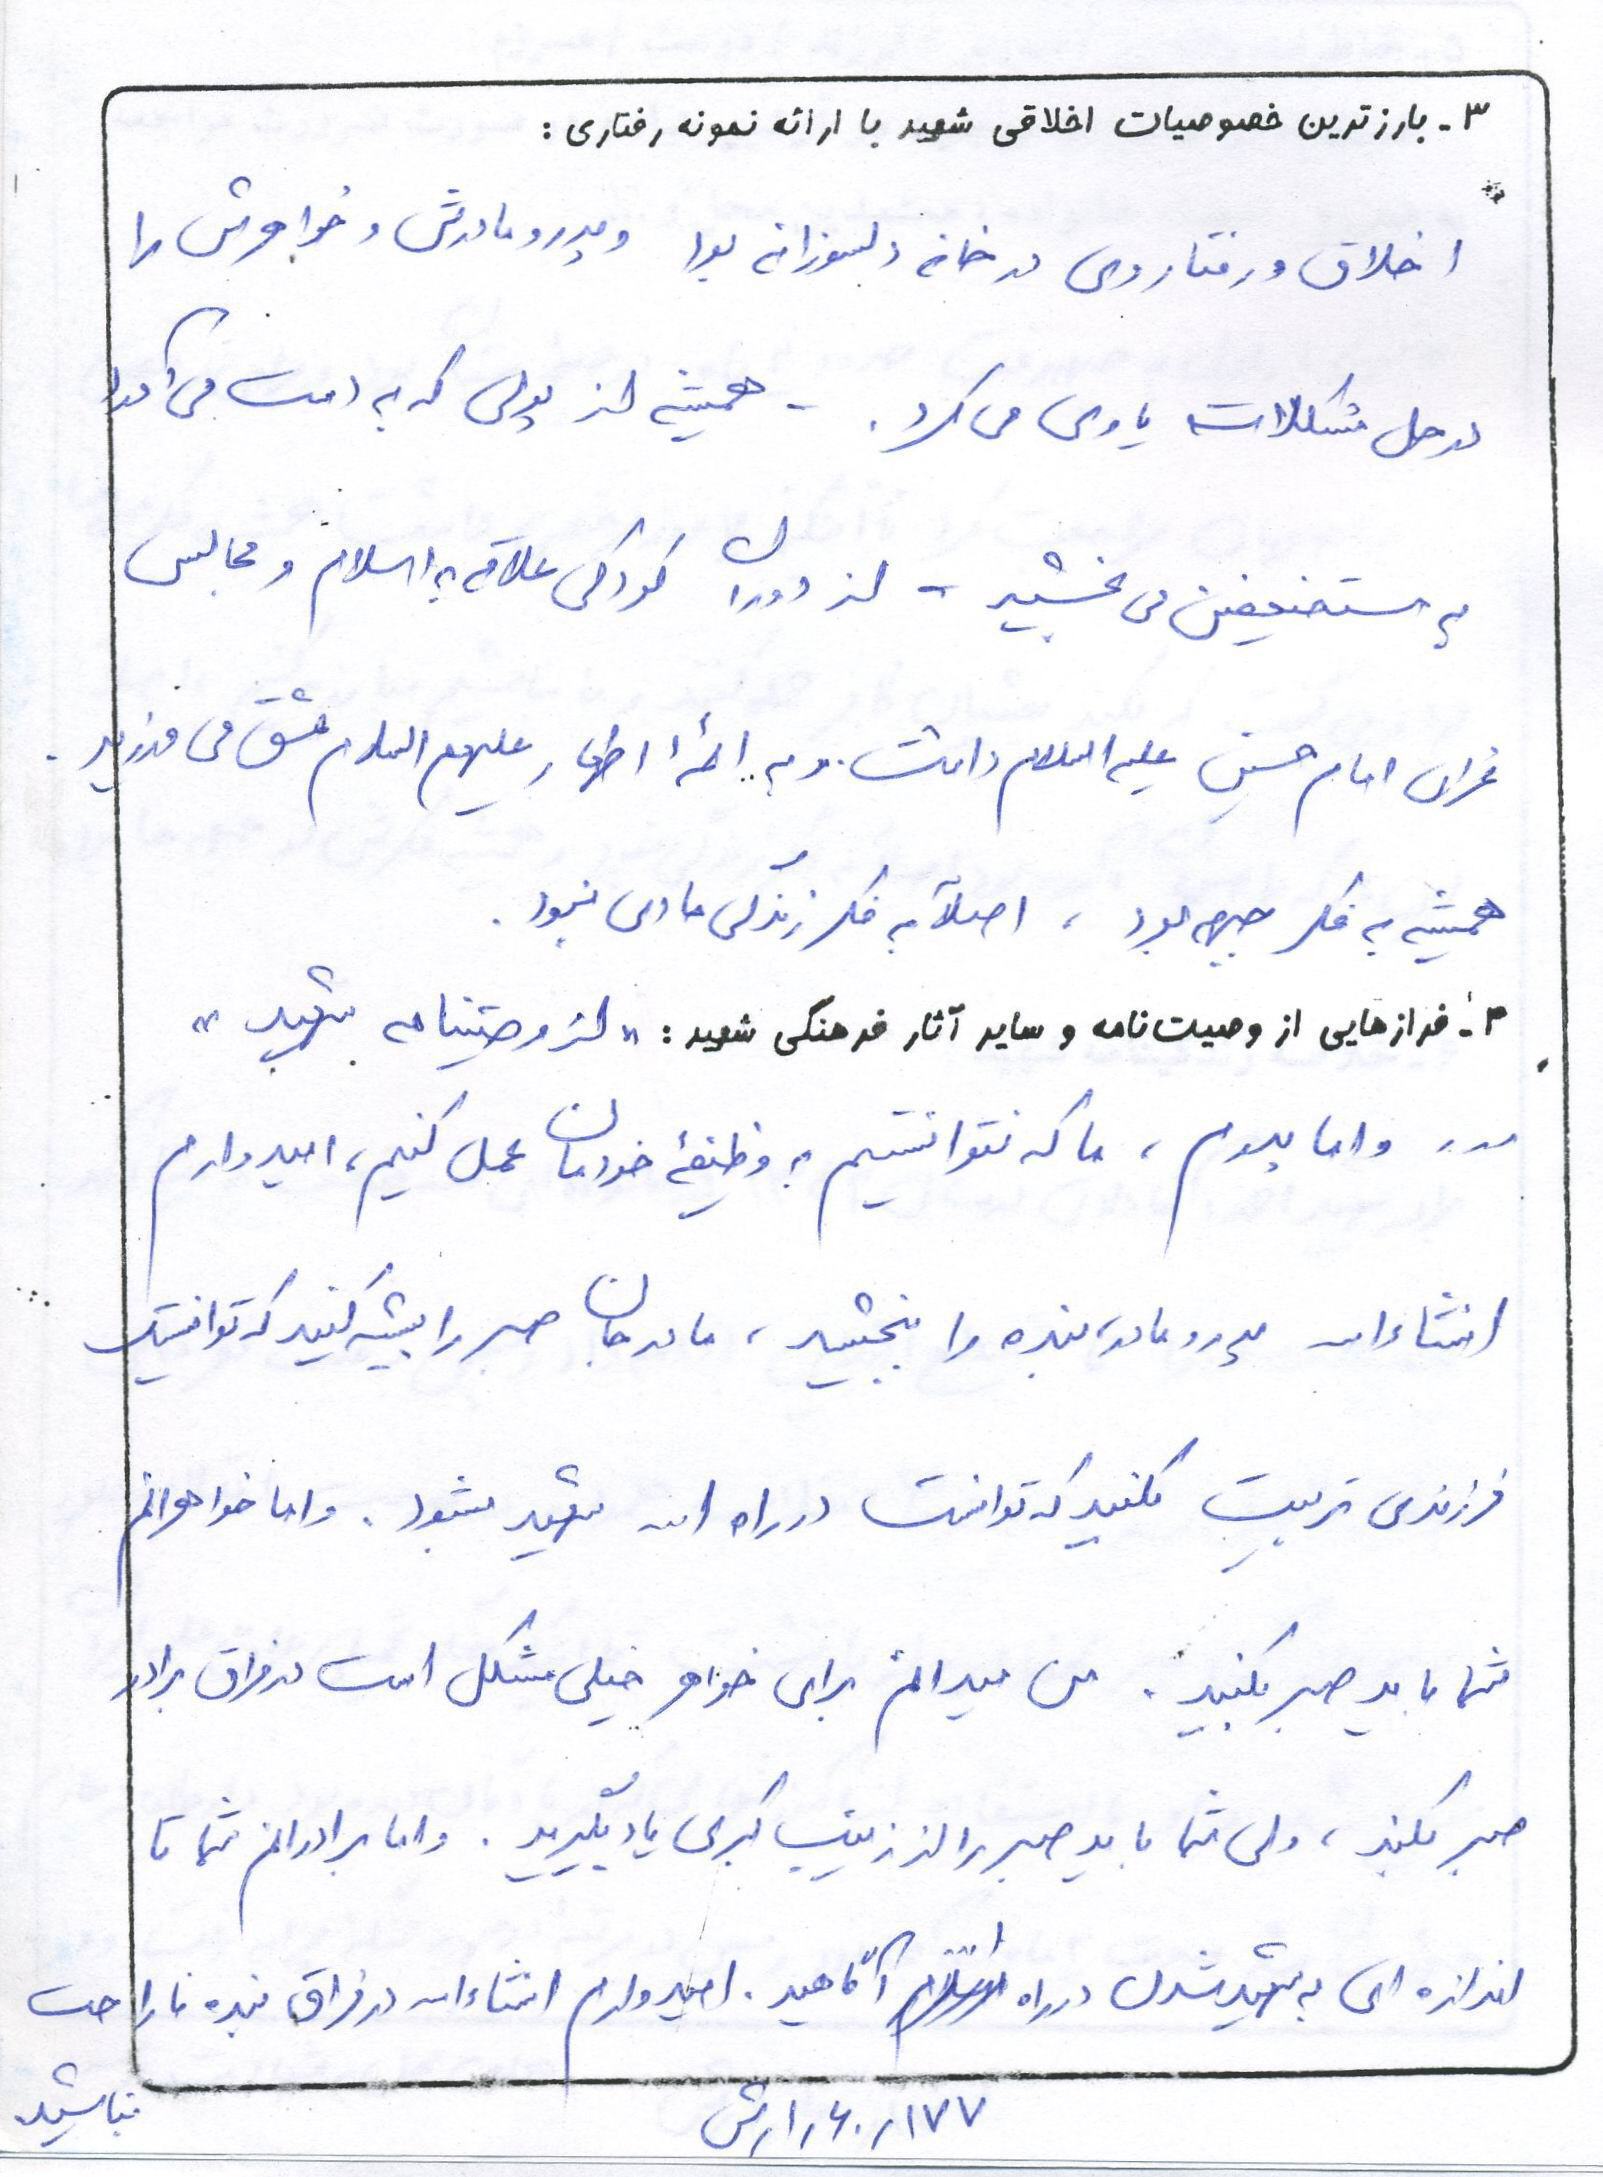 ۳- بارزترین خصوصیات اخلاقی شهید با ارائه نمونه رفتاری :
اخلاق و رفتار وی در خانه دلسوزانه بود و پدر و مادرش و خواهرش را
در حل مشکلات یاوری می کرد . - همیشه از پولی که به دست می آورد
به مستضعفین می بخشید - از دوران کودکی علاقه به اسلام و مجالس
عزای امام حسین علیه السلام داشت . و به ائمهٔ اطهار علیهم السلام عشق می ورزید .
همیشه به فکر جبهه بود ، اصلاً به فکر زندگی مادی نبود .
۴- فرازهایی از وصیت‌نامه و سایر آثار فرهنگی شهید : « از وصیتنامه شهید »
... و اما پدرم ، ما که نتوانستیم به وظیفهٔ خودمان عمل کنیم ، امیدوارم
انشاءالله پدر و مادر، بنده را ببخشید ، مادرجان صبر را پیشه کنید که توانستید
فرزندی تربیت بکنید که توانست در راه الله شهید بشود . و اما خواهرانم
شما باید صبر بکنید . من میدانم برای خواهر خیلی مشکل است در فراق برادر
صبر بکند ، ولی شما باید صبر را از زینب کبری یاد بگیرید . و اما برادرانم شما تا
اندازه ای به شهید شدن در راه اسلام آگاهید . امیدوارم انشاءالله در فراق بنده ناراحت
نباشید